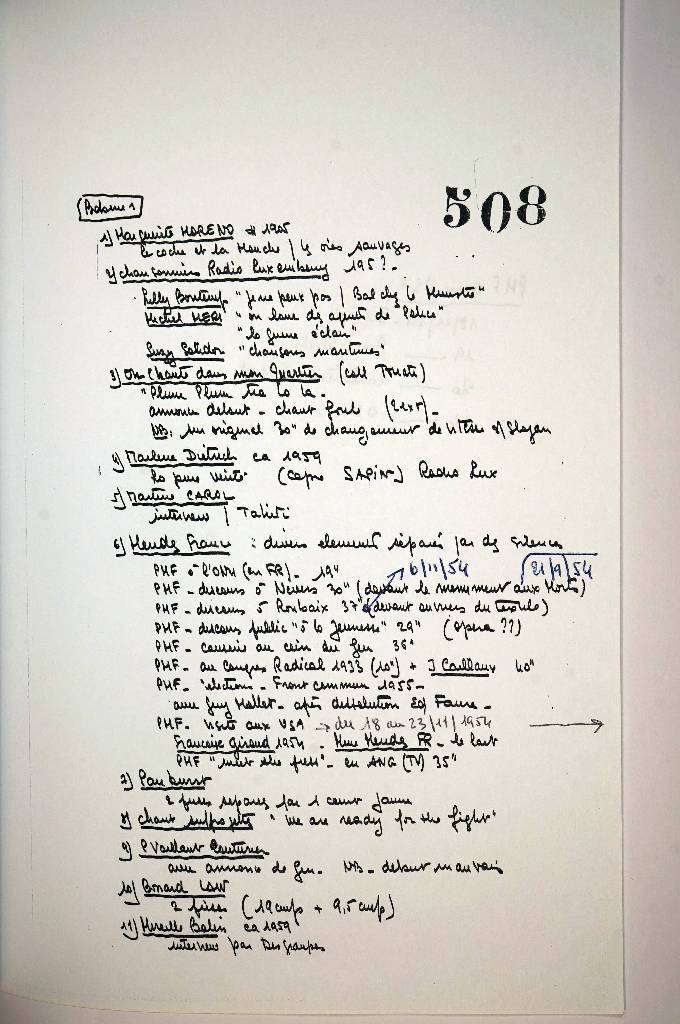 508
Bobine 1
1) Marguerite MORENO # 1905
le coche et la Mouche / les oies sauvages
2) chansonniers Radio Luxembourg 195?
"je ne peux pas / Bal chez le Ministre"
Michel MERI "on loue des agents de Police"
"la guerre éclair"
Suzy Solidor "chansons maritimes"
3) On chante dans mon Quartier (coll Tonati)
"Ploum Ploum tra la la.
annonce debut - chant foule (2ex)
NB: sur original 30" de changement de vitesse s/ Slogan
4) Marlene Dietrich ca 1959
(Capne SAPIN) Radio Lux
5) Martine CAROL
interview / Tahiti
6) Mendès France : divers elements séparés par des silences
PMF à l'ONU (en FR) - 19" 21/9/54
PMF - discours à Nevers 30" (devant le monument aux Morts) 6/11/54
PMF - discours à Roubaix 37" (devant ouvriers du textile)
PMF - discours public "à la Jeunesse" 29" (opera ??)
PMF - causerie au coin du feu 36"
PMF - au congres Radical 1933 (10") + J Caillaux 40"
PMF - élections - Front commun 1955 -
avec Guy Mollet - après dissolution Ed Faure -
PMF - visite aux USA → du 18 au 23/11/1954 →
Françoise Giroud 1954 - Mme Mendès FR -
PMF "meet the press" - en ANG (TV) 35"
7) Pankurst
2 faces separées par 1 cavalier jaune
8) chant suffragette "we are ready for the fight"
9) P Vaillant Couturier
avec annonce de fin - NB - debut mauvais
10) Bonard LAW
2 faces (19cm/s + 9,5 cm/s)
11) Mireille Balin ca 1959
interview par Desgraupes